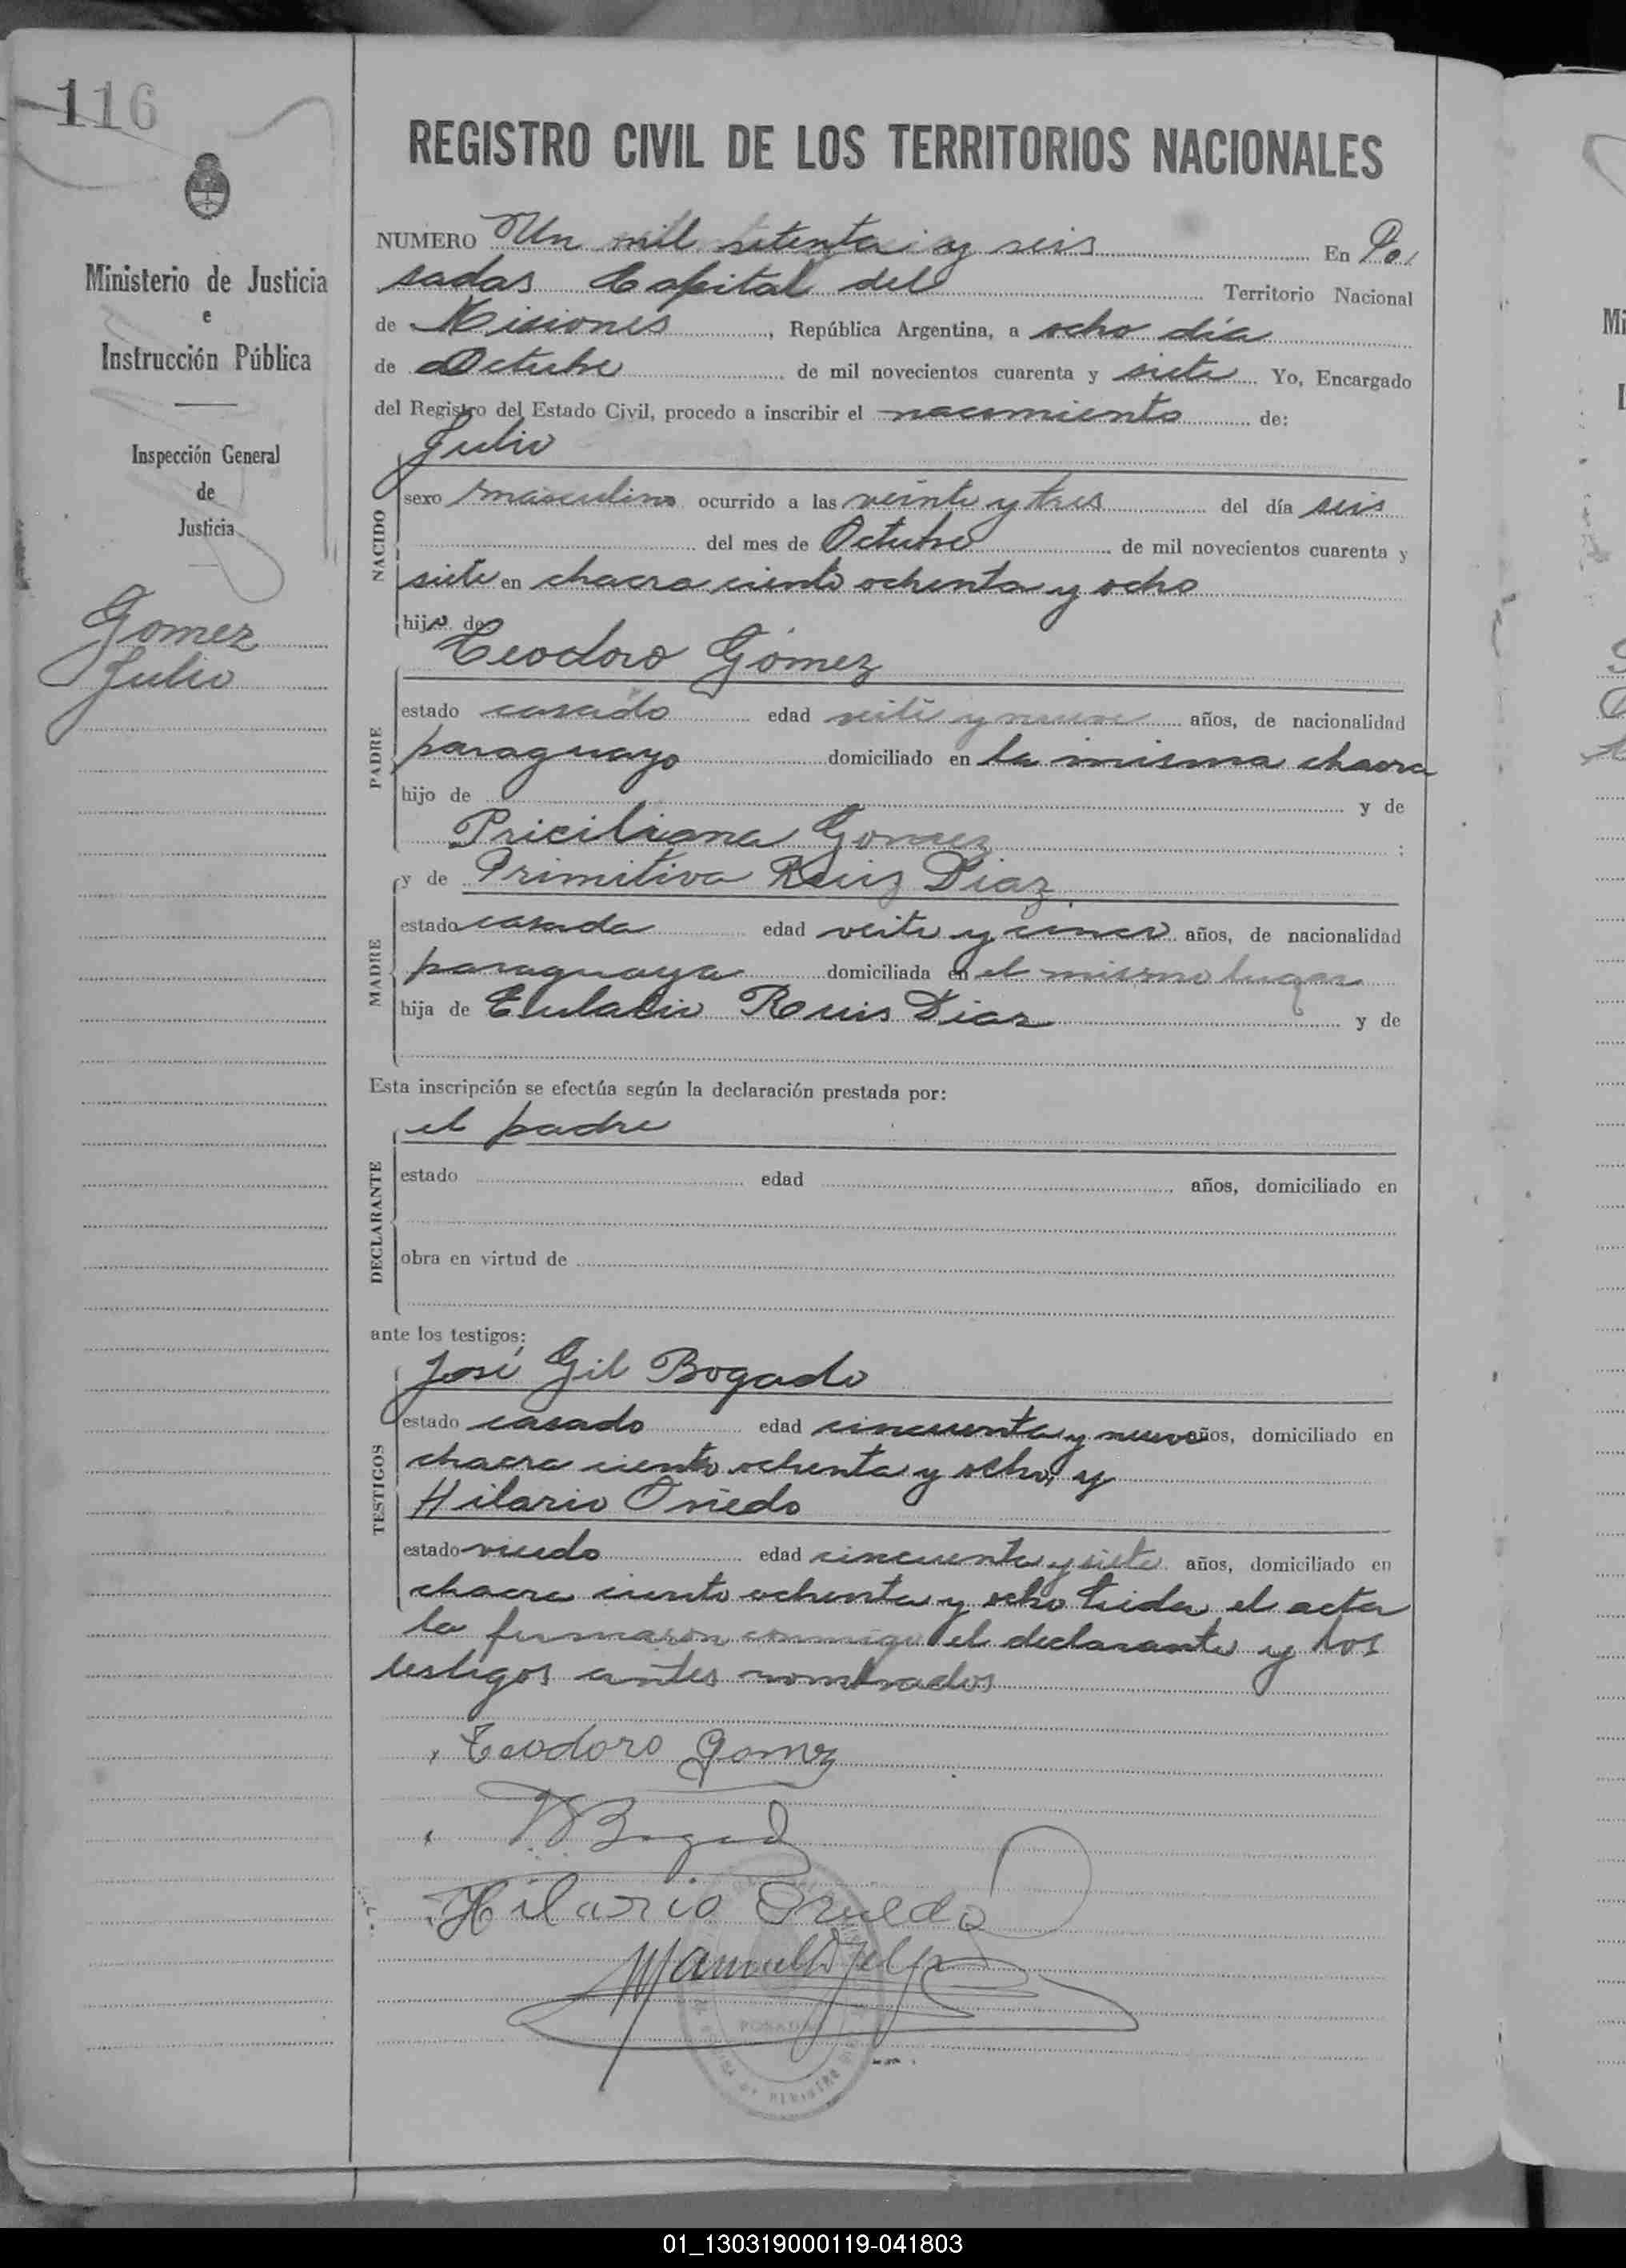 116
Ministerio de Justicia
e
Instrucción Pública
Inspección General
de
Justicia
Gomez
Julio
REGISTRO CIVIL DE LOS TERRITORIOS NACIONALES
NUMERO Un mil setenta y seis En Po
sadas Capital del Territorio Nacional
de Misiones, República Argentina, a ocho día
de Octubre de mil novecientos cuarenta y siete Yo, Encargado
del Registro del Estado Civil, procedo a inscribir el nacimiento de:
Julio
NACIDO
sexo masculino ocurrido a las veinte y tres del día seis
del mes de Octubre de mil novecientos cuarenta y
siete en chacra ciento ochenta y ocho
hijo de
Teodoro Gómez
PADRE
estado casado edad veite y nueve años, de nacionalidad
paraguayo domiciliado en la misma chacra
hijo de y de
Priciliana Gomez;
y de Primitiva Ruiz Diaz
MADRE
estado casada edad veite y cinco años, de nacionalidad
paraguaya domiciliada en el mismo lugar
hija de Eulalio Ruis Diaz y de
Esta inscripción se efectúa según la declaración prestada por:
el padre
DECLARANTE
estado edad años, domiciliado en
obra en virtud de
ante los testigos:
José Gil Bogado
TESTIGOS
estado casado edad cincuenta y nueve años, domiciliado en
chacra ciento ochenta y ocho, y
Hilario Oviedo
estado viudo edad cincuenta y siete años, domiciliado en
chacra ciento ochenta y ocho leida el acta
la firmaron conmigo el declarante y los
testigos antes nombrados
Teodoro Gomez
Hilario Oviedo
POSADAS
Mi
01_130319000119-041803